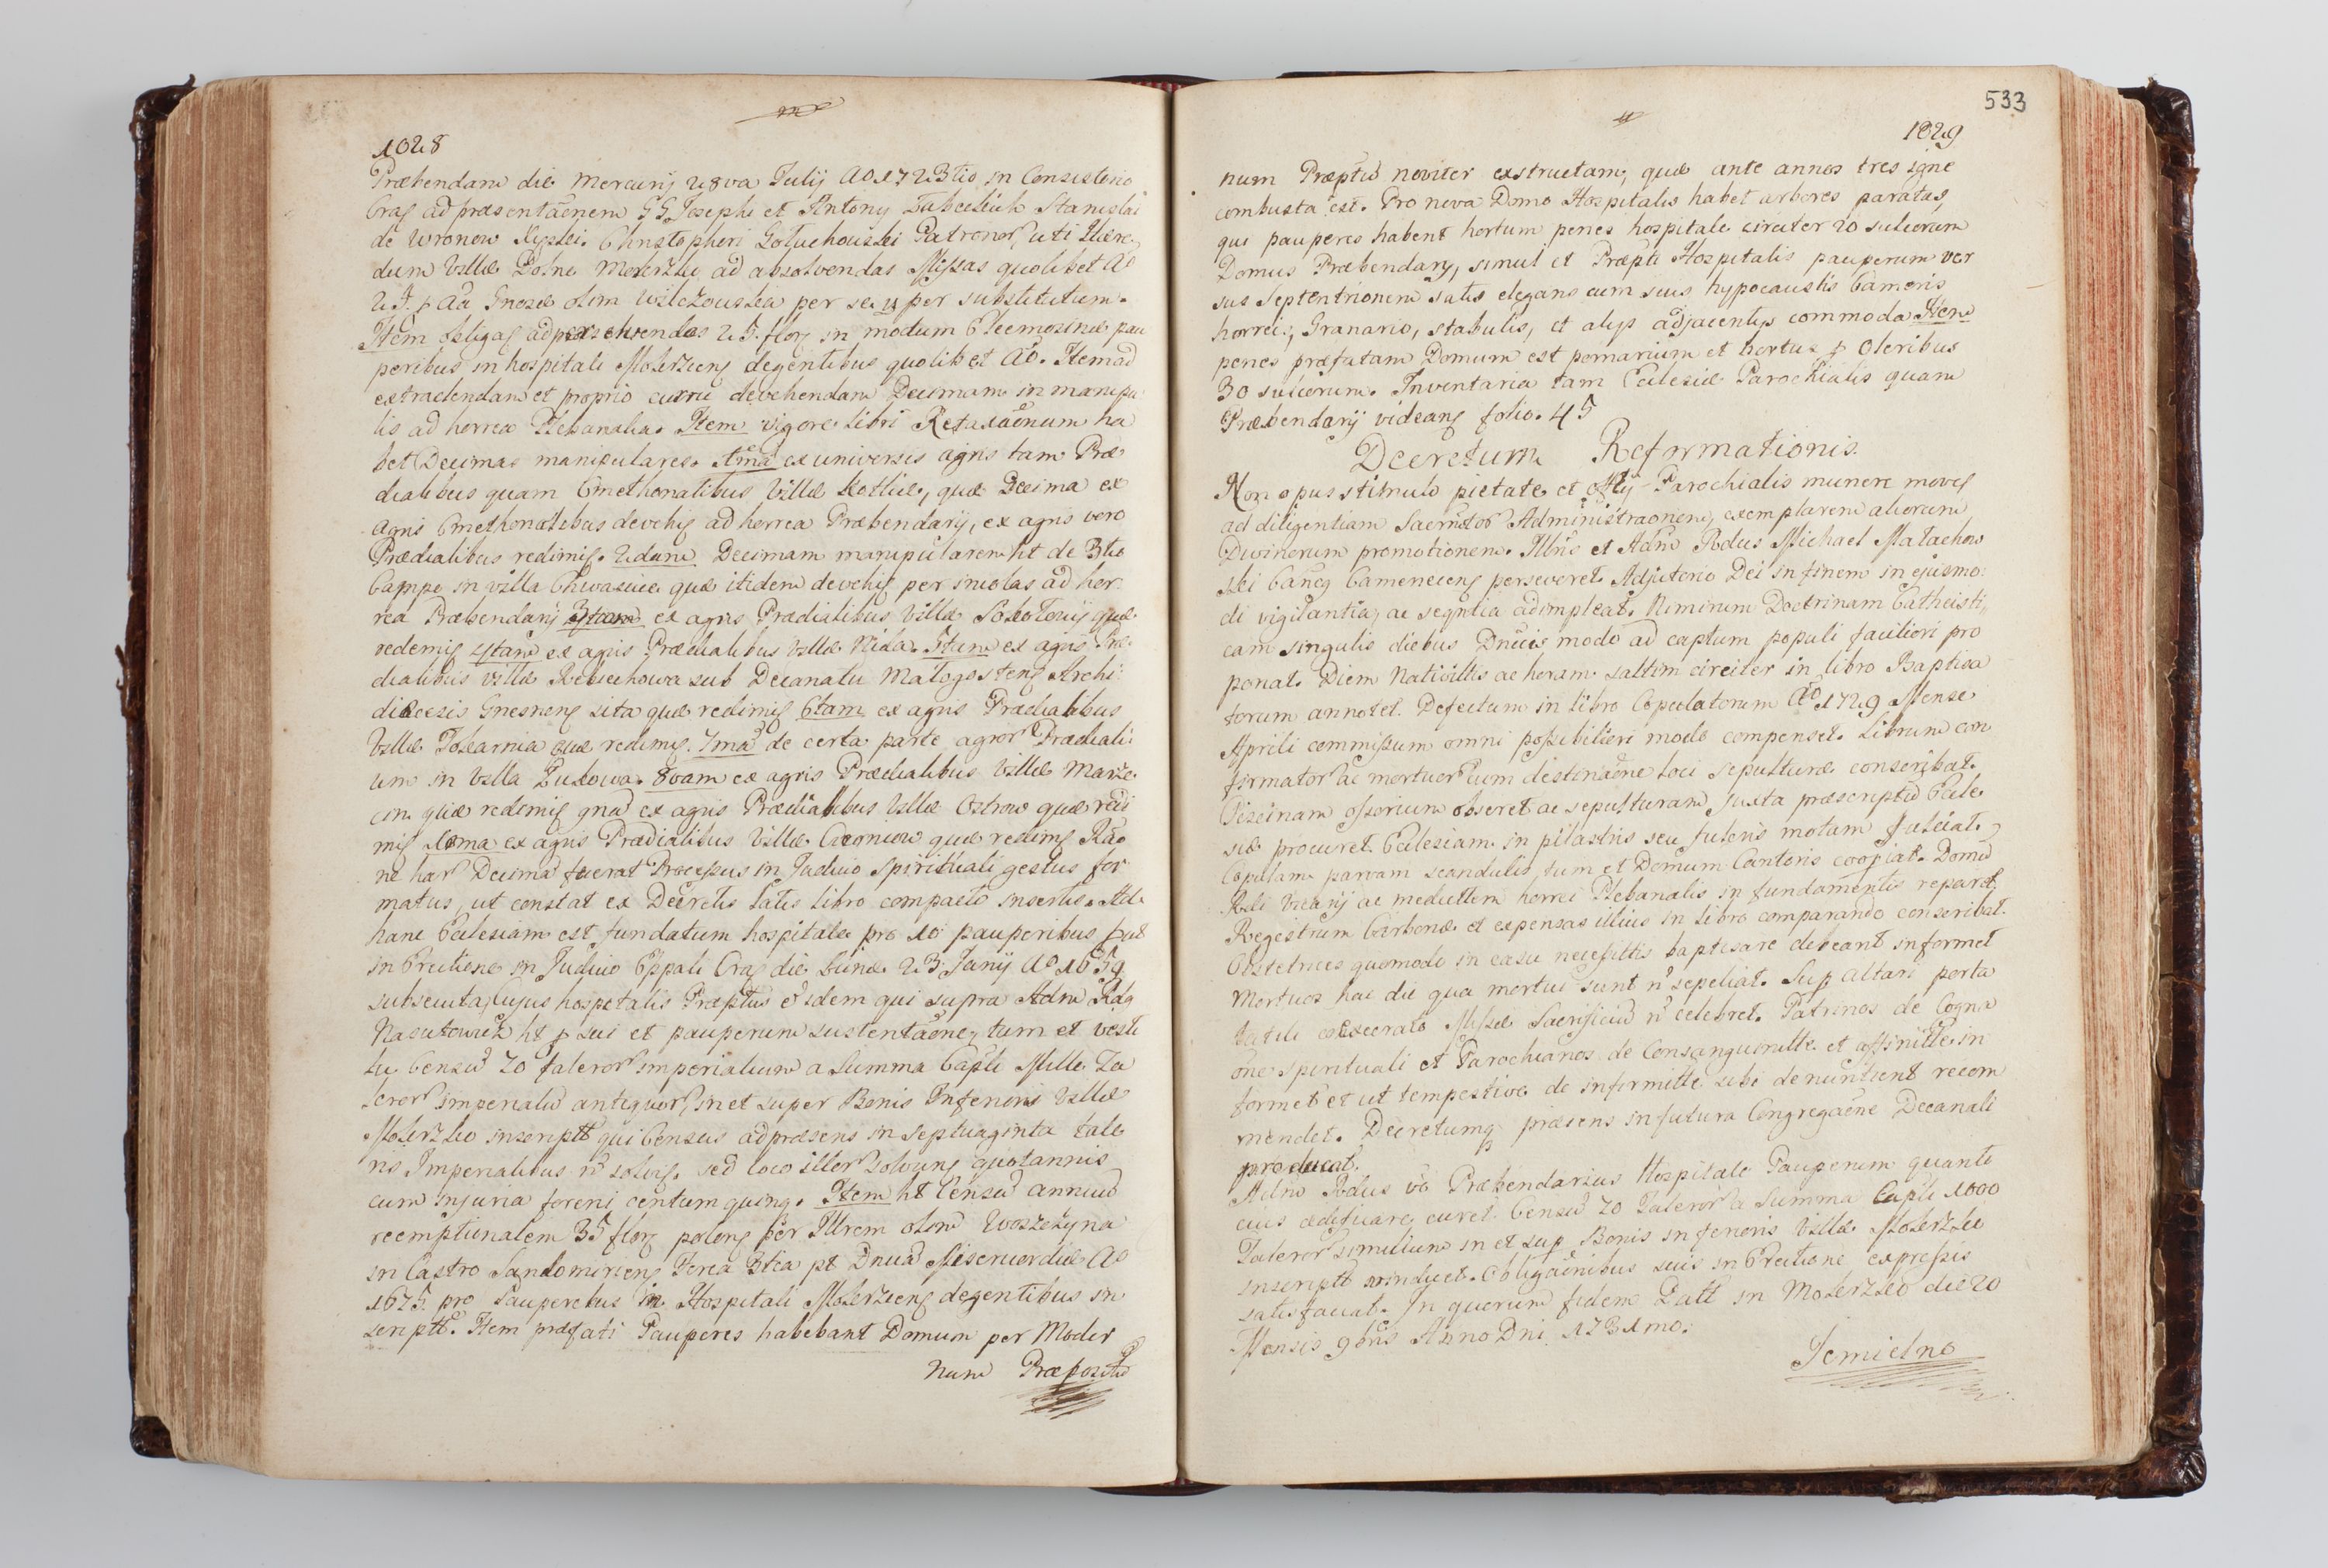 1028
Præbendam die Mercurij 28va Julij Ao 1723tio in Consistorio
Crac ad præsentãonem GG Josephi et Antony Stanislai
de Wronow Christopheri Gołuchowski Patronor uti Hære
dum Villæ Dolne Mokrzko ad absolvendas Missas quolibet Ao
25 p Aa Gnosæ olim Wilczouska per se, per substitutum.
Item obligas ad persolvendos 25 flos in modum Eleemosinæ pau
peribus in hospitali Mokrzeens degentibus quolibet Ao. Item ad
extradendam et proprio curru devehendam Decimam in manipu
lis ad horrea Plebanalia. Item vigore libri Retaxãonum ha
bet Decimas manipulares. 1ma ex universis agris tam Præ
dialibus quam Cmethonalibus Villæ, quæ Decima ex
agris Cmethonalibus devehis ad horrea Præbendarij, ex agris vero
Prædialibus redimis. 2dam Decimam manipularem ht de 3tio
Campo in villa Chwascice quæ itidem devehis per incolas ad hor
rea Præbendarij 3tiam ex agris Prædialibus Villæ quæ
redimis 4tam ex agris Prædialibus Villæ Nida. 5tam ex agris Præ
dialibus villæ sub Decanatu Małogostens Archi
diæcesis Gnesnens sita quæ redimis 6tam ex agris Prædialibus
Villæ Tokarnia quæ redimis. 7ma de certa parte agror Prædiali
um in Villa Żukowa. 8vam ex agris Prædialibus Villæ
quæ redimis 9na ex agris Prædialibus Villæ Ostrow quæ redi
mis 10ma ex agris Prædialibus Villæ quæ redimis Rão
ne har Decima fuerat Processus in Judicio Spirituali gestus for
matus, ut constat ex Decretis Latis libro compacto insertis. Ad
hanc Ecclesiam est fundatum hospitale pro 10 pauperibus put
in Erectione in Judicio Eppali Crac die Lunæ 23 Junij Ao 1659
subsecuta, Cujus hospitalis Præptus e idem qui supra Adm Rdq
Nasutowicz ht p sui et pauperum sustentãone, tum et vesti
tu Censu 70 taleror imperialium a Summa Capli Mille Ta
leror imperialiu antiquor, in et super Bonis Inferioris Villæ
Mokrzko inscriptt qui Census ad præsens in Septuaginta tale
ris Imperialibus n solvis. sed loco illor solvuns quotannis
cum injuria floreni centum quinq. Item ht Censu annuu
reemptionalem 35 flos polons per Illrem olim Woszczyna
in Castro Sandomiriens Feria 3tia pt Dnicã Misericordiæ Ao
1675. pro Pauperibus in Hospitali Mokrzeens degentibus in
scriptt. Item præfati Pauperes habebant Domum per Moder
num Præpositu
533
1029
num Præptu noviter exstructam, quæ ante annos tres igne
combusta est. Pro nova Domo Hospitalis habet arbores paratas,
qui pauperes habent hortum penes hospitale circiter 20 sulcorum
Domus Præbendary, simul et Præpti Hospitalis pauperum ver
sus Septentrionem satis elegans cum suis hypocaustis Cameris
horreis, Granario, stabulis, et alijs adjacentijs commoda Item
penes præfatam Domum est pomarium et hortus p Oleribus
30 sulcorum. Inventaria tam Ecclesiæ Parochialis quam
Præbendarij videans folio. 45
Decretum Reformationis.
Non opus stimulo pietate et Parochialis munere moves
ad diligentiam Sacrmtor Administraonem, exemplarem aliorum
Divinorum promotionem. Illris et Adm Rdus Michael Małachow
ski Canc Camenecens perseveret Adjutorio Dei in finem in ejusmo
di vigilantia, ac seqntia adimpleat. Nimirum Doctrinam Catheisti
cam singulis diebus Dnicis modo ad captum populi faciliori pro
ponat. Diem Nativittis ac horam saltim circiter in libro Baptisa
torum annotet. Defectum in libro Copulatorum Ao 1729 Mense
Aprili commissum omni possibiliori modo compenset. Librum con
firmator ac mortuor cum destinãone loci sepulturæ conscribat.
Piscinam ossorium obseret ac sepulturam juxta præscriptu Eccle
siæ procuret. Ecclesiam in pilastris seu fulcris motam fulciat.
Copulam parvam scandulis, tum et Domum Cantoris cooptiat. Domu
Rdi Vicarij ac medietem horrei Plebanalis in fundamentis reparet,
Regestrum Carbonæ et expensas illius in libro comparando conscribat.
Obstetrices quomodo in casu necessittis baptisare debeant informet
Mortuos hac die qua mortui sunt n sepeliat. Sup altari porta
tili consecrato Missæ Sacrificiu n celebret. Patrinos de Cogna
one Spirituali et Parochianos de Consanguinitte et affinitte in
formet et ut tempestive de infirmitte sibi denuntient recom
mendet. Decretumq præsens in futura Congregaone Decanali
producat.
Adm Rdus vo Præbendarius Hospitale Pauperum quanto
cius ædificare curet. Censu 70 Taleror a Summa Capli 1000
Taleror similium in et sup Bonis inferioris Villæ Mokrzko
inscriptt vindicet. Obligaonibus suis in Erectione expressis
satisfaciat. In quorum fidem Datt in Mokrzko die 20
Mensis 9bris Anno Dni 1731mo.
Jemielno